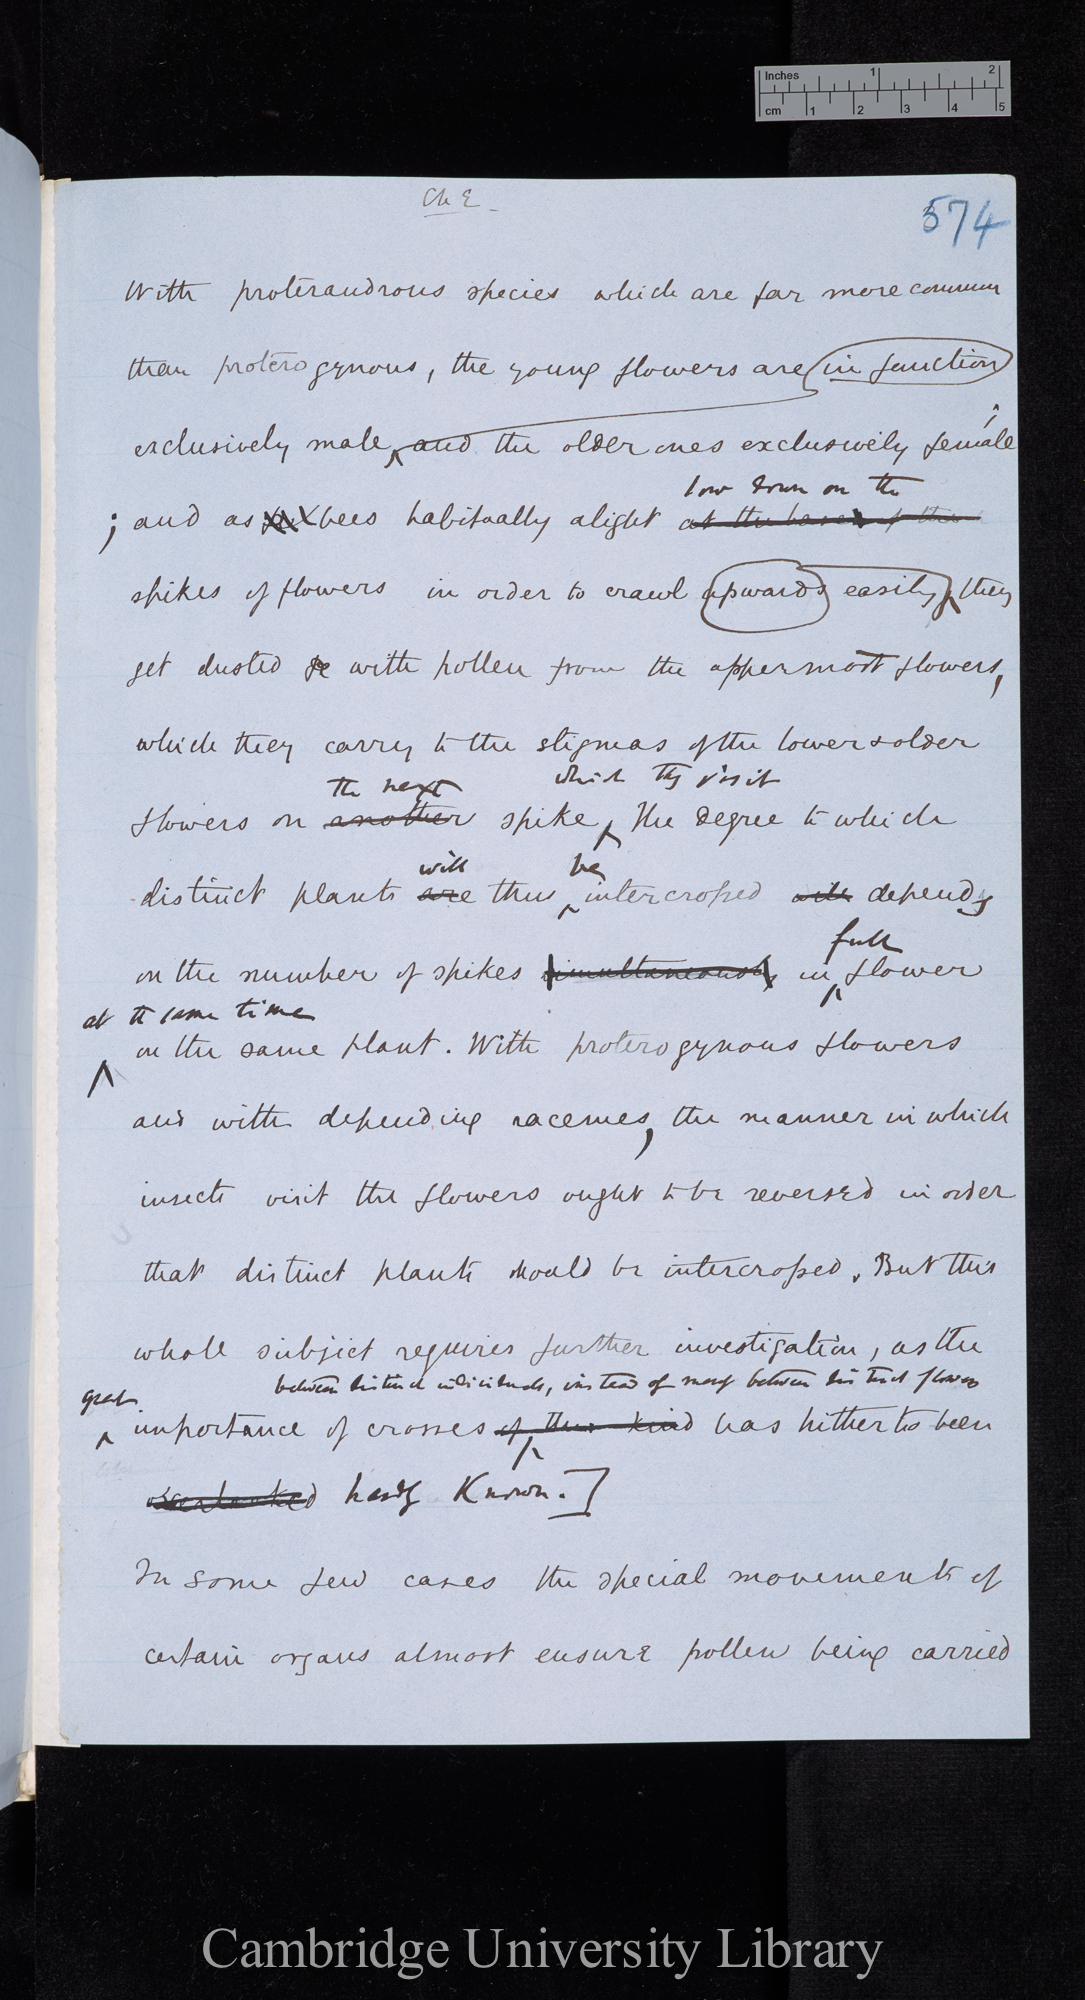 Inches 1 2
cm 1 2 3 4 5
Ch E
574
With proterandrous species which are far more common
than proterogynous, the young flowers are in function
exclusively male, and the older ones exclusively female
low down on the
; and as bees habitually alight at the base of the
spikes of flowers in order to crawl upwards easily, they
get dusted with pollen from the uppermost flowers,
which they carry to the stigmas of the lower & older
the next which they visit
flowers on another spike, The degree to which
will be
distinct plants are thus intercrossed will depends
full
on the number of spikes simultaneously in flower
at the same time
on the same plant. With proterogynous flowers
and with depending racemes, the manner in which
insects visit the flowers ought to be reversed in order
that distinct plants should be intercrossed. But this
whole subject requires further investigation, as the
great between distinct individuals, instead of merely between distinct flowers
importance of crosses of this kind has hitherto been
overlooked hardly known.]
In some few cases the special movements of
certain organs almost ensure pollen being carried
Cambridge University Library